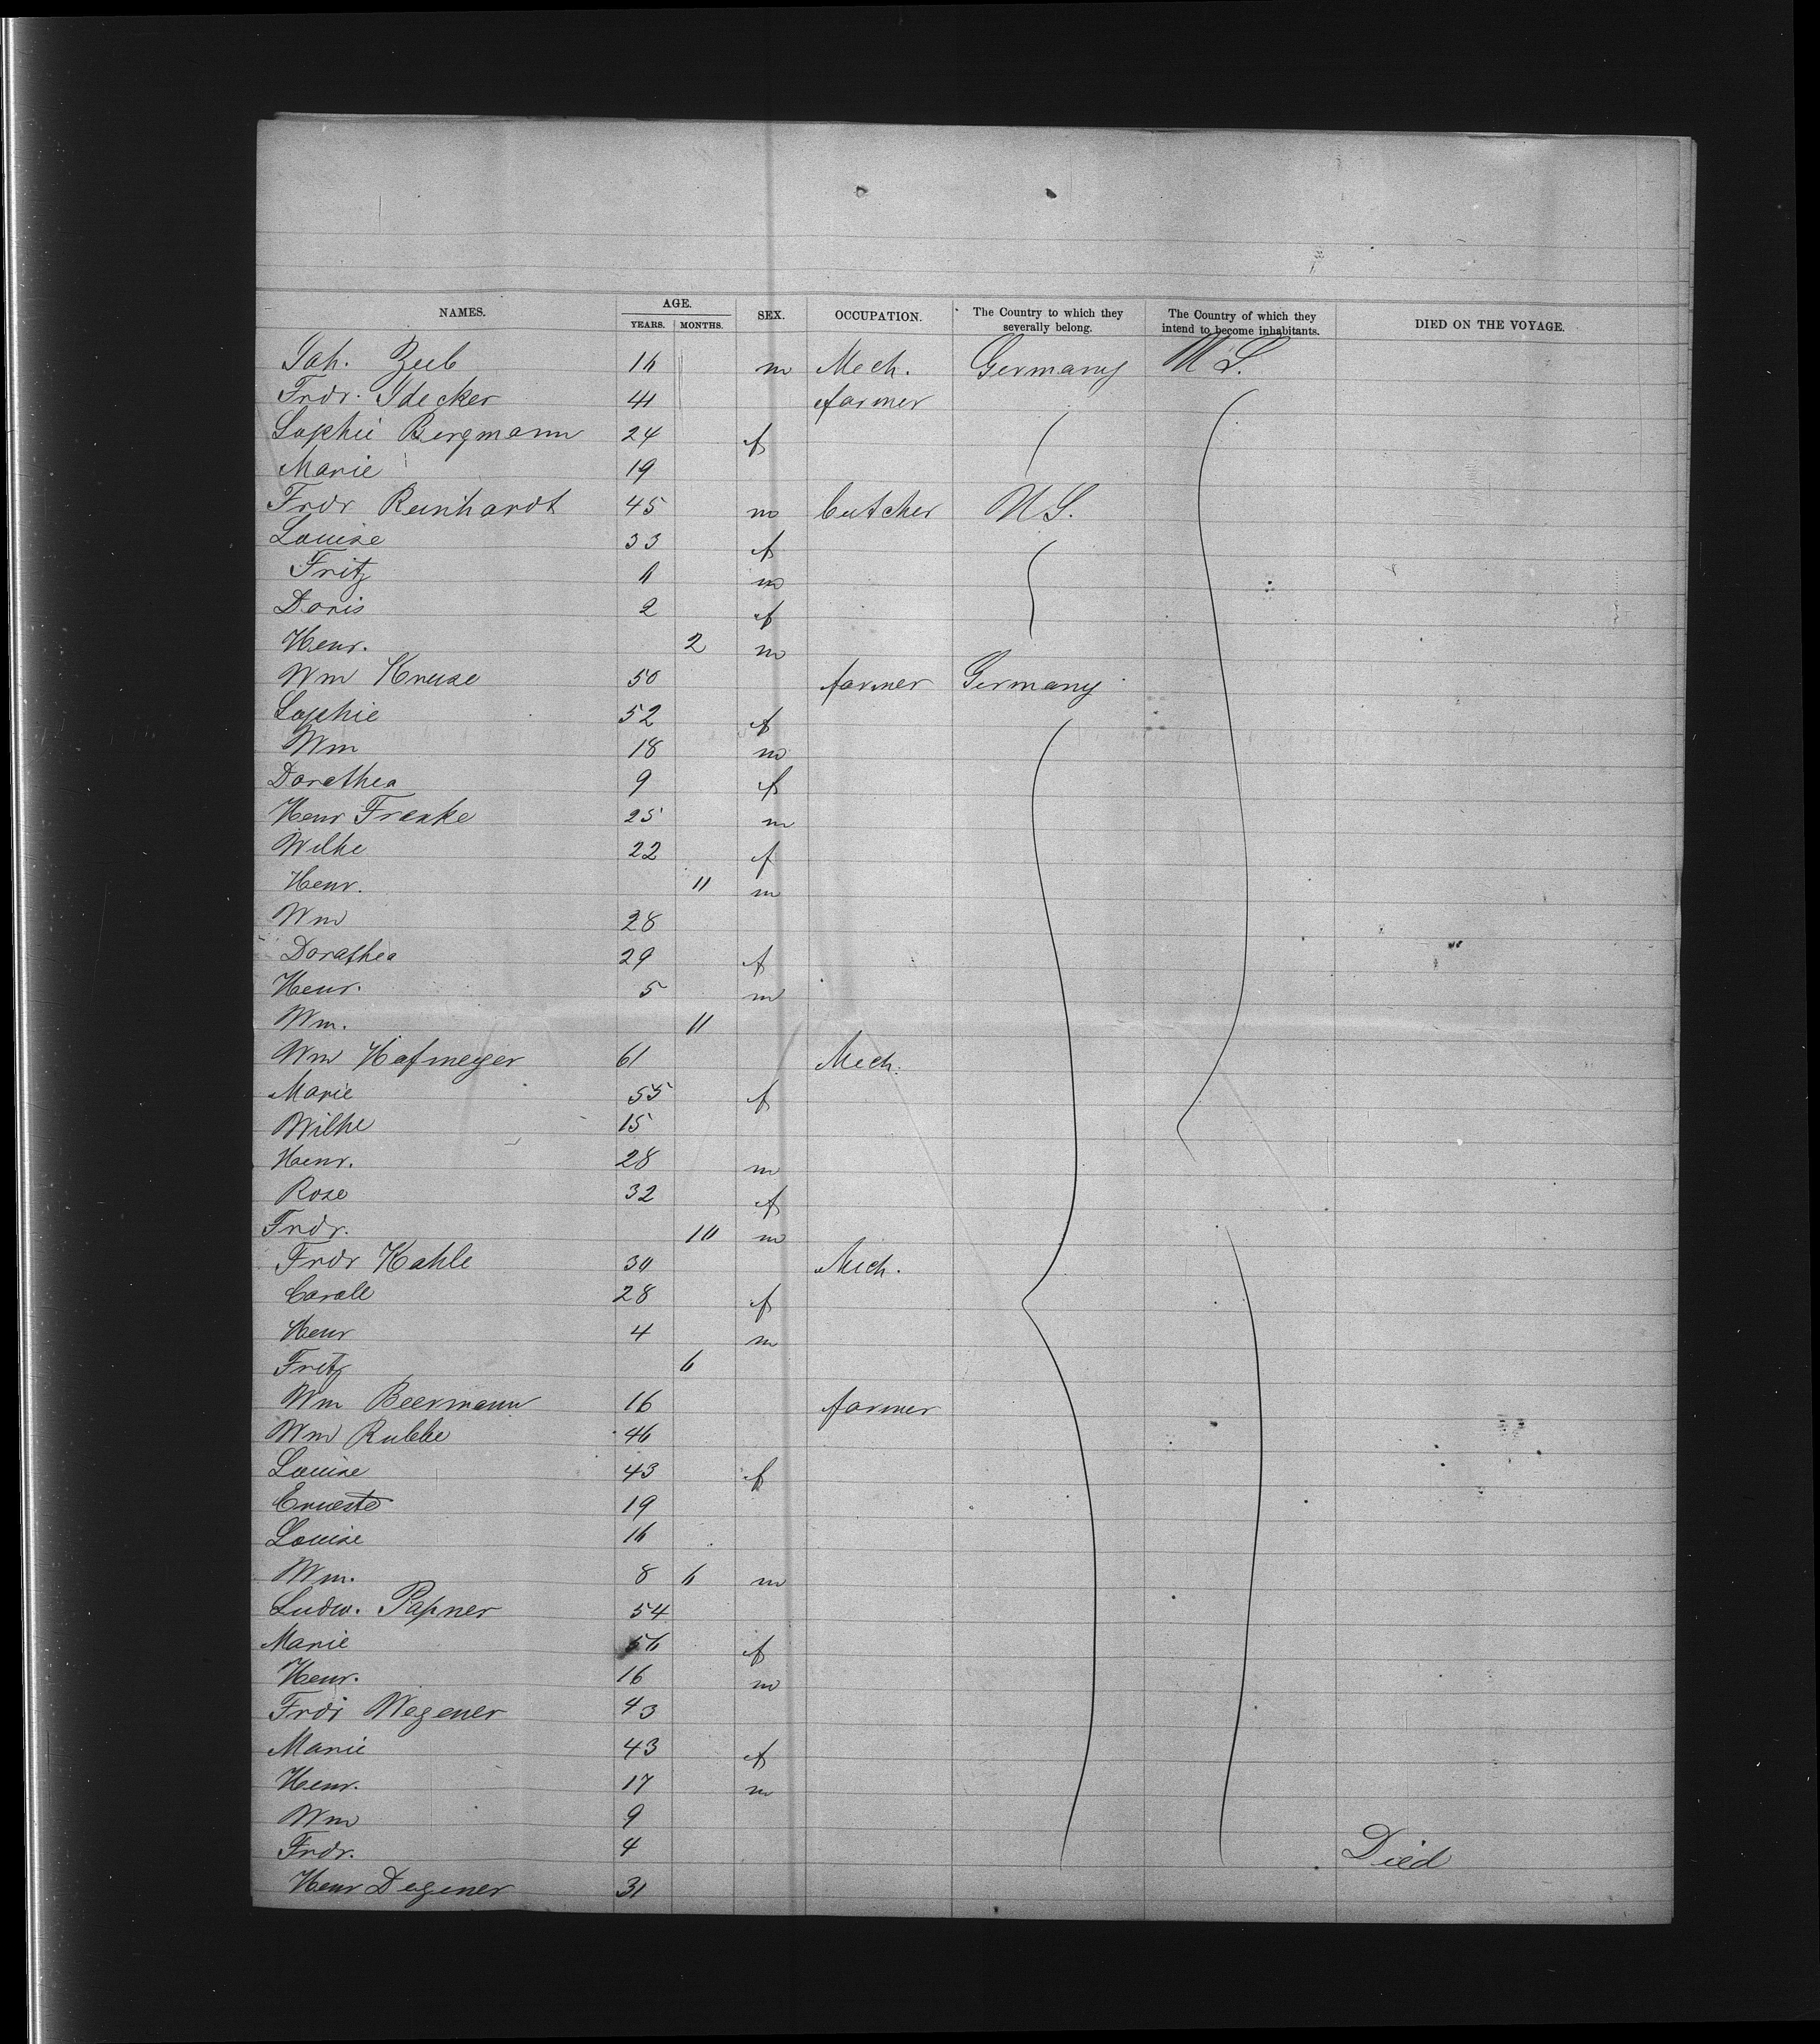 NAMES. AGE. YEARS. MONTHS. SEX. OCCUPATION. The Country to which they severally belong. The Country of which they intend to become inhabitants. DIED ON THE VOYAGE.
Joh. Zeeb 16 m Mech. Germany U S.
Frdr. Idecker 41 farmer
Sophie Bergmann 24 f
Marie 19
Frdr Reinhardt 45 m butcher U S.
Louise 33 f
Fritz m
Doris 2 f
Henr. 2 m
Wm Kruse 50 farmer Germany
Sophie 52 f
Wm 18 m
Dorathea 9 f
Henr Franke 25 m
Wilhe 22 f
Henr. 11 m
Wm 28
Dorathea 29 f
Henr. 5 m
Wm. 11
Wm Hofmeyer 61 Mech.
Marie 55 f
Wilhe 15
Henr. 28 m
Rose 32 f
Frdr. 10 m
Frdr Kahle 30 Mech.
Carole 28 f
Henr 4 m
Fritz 6
Wm Beermann 16 farmer
Wm Rubbe 46
Louise 43 f
Erneste 19
Louise 16
Wm. 8 6 m
Ludw. Papner 54
Marie 56 f
Henr. 16 m
Frdr Wegener 43
Marie 43 f
Henr. 17 m
Wm 9
Frdr. 4 Died
Henr Degener 31